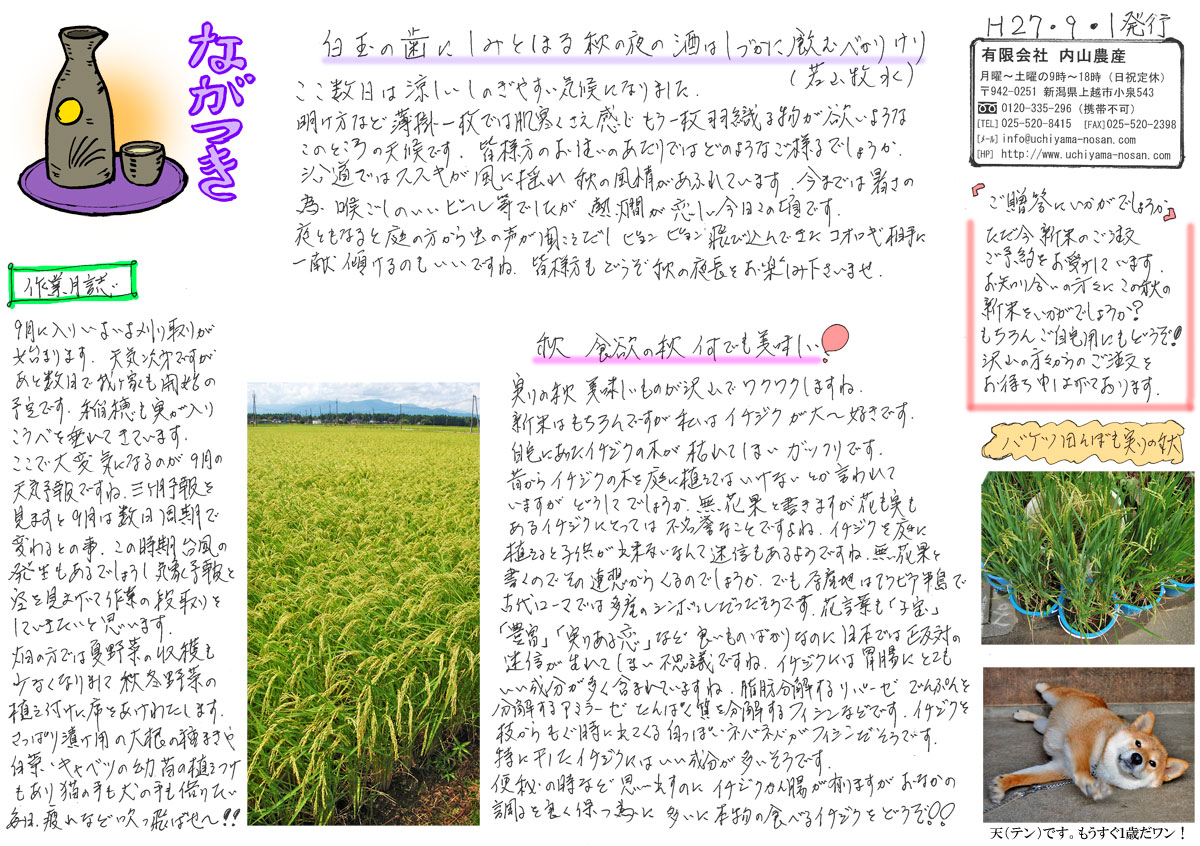 ながつき
白玉の歯にしみとほる秋の夜の酒はしづかに飲むべかりけり
(若山牧水)
ここ数日は涼しいしのぎやすい気候になりました。
明け方など薄掛一枚では肌寒くさえ感じもう一枚羽織る物が欲いような
このところの天候です。皆様方のお住いのあたりではどのようなご様るでしょうか。
シ道ではススキが風に揺れ 秋の風情があふれています。今までは暑さの
為、喉ごしのいいビール等でしたが 熱燗が恋しい今日この頃です。
夜ともなると庭の方から虫の声が聞こえだし ピョン ピョン 飛び込んできたコオロギ相手に
一献傾けるのもいいですね。皆様方もどうぞ秋の夜長をお楽しみ下さいませ。
H27.9.1発行
有限会社 内山農産
月曜~土曜の9時~18時(日祝定休)
〒942-0251 新潟県上越市小泉543
0120-335-296(携帯不可)
[TEL] 025-520-8415 [FAX]025-520-2398
[メール] info@uchiyama-nosan.com
[HP] http://www.uchiyama-nosan.com
『ご贈答にいかがでしょうか』
ただ今 新米のご注文
ご予約をお受けしています。
お知り合いの方々にこの秋の
新米をいかがでしょうか?
もちろん ご自宅用にもどうぞ!
沢山の方々からのご注文を
お待ち申し上げております。
作業日誌
9月に入りいよいよ刈り取りが
始まります。天気次第ですが
あと数日で我が家も開始の
予定です。稲穂も実が入り
こうべを垂れてきています。
ここで大変気になるのが9月の
天気予報ですね。三ヶ月予報を
見ますと9月は数日周期で
変わるとの事。この時期台風の
発生もあるでしょうし気象予報と
空を見上げて作業の段取りを
していきたいと思います。
畑の方では夏野菜の収穫も
少なくなりまして秋冬野菜の
植え付けに席をあけわたします。
さっぱり漬け用の大根の種まきや
白菜・キャベツの幼苗の植えつけ
もあり猫の手も犬の手も借りたい
毎日、疲れなど吹っ飛ばせ~!!
秋 食欲の秋 何でも美味しい
実りの秋 美味しいものが沢山でワクワクしますね。
新米はもちろんですが私はイチジクが大~好きです。
自宅にあったイチジクの木が枯れてしまいガックリです。
昔からイチジクの木を庭に植えてはいけないとか言われて
いますが どうしてでしょうか。無花果と書きますが花も実も
あるイチジクにとっては不名誉なことですよね。イチジクを庭に
植えると子供が出来ないなんて迷信もあるようですね。無花果と
書くのでその連想からくるのでしょうか。でも原産地はアラビア半島で
古代ローマでは多産のシンボルだったそうです。花言葉も「子宝」
「豊富」「実りある恋」など良いものばかりなのに日本では正反対の
迷信が生れてしまい不思議ですね。イチジクには胃腸にとても
いい成分が多く含まれていますね。脂肪分解するリパーゼ でんぷんを
分解するアミラーゼ たんぱく質を分解するフィシンなどです。イチジクを
枝からもぐ時に出てくる白っぽいネバネバがフィシンだそうです。
特に干したイチジクにはいい成分が多いそうです。
便秘の時など思い出すのに イチジクカン腸が有りますが おなかの
調子を良く保つ為に 多いに本物の食べるイチジクをどうぞ!!
バケツ田んぼも実りの秋
天(テン)です。もうすぐ1歳だワン!